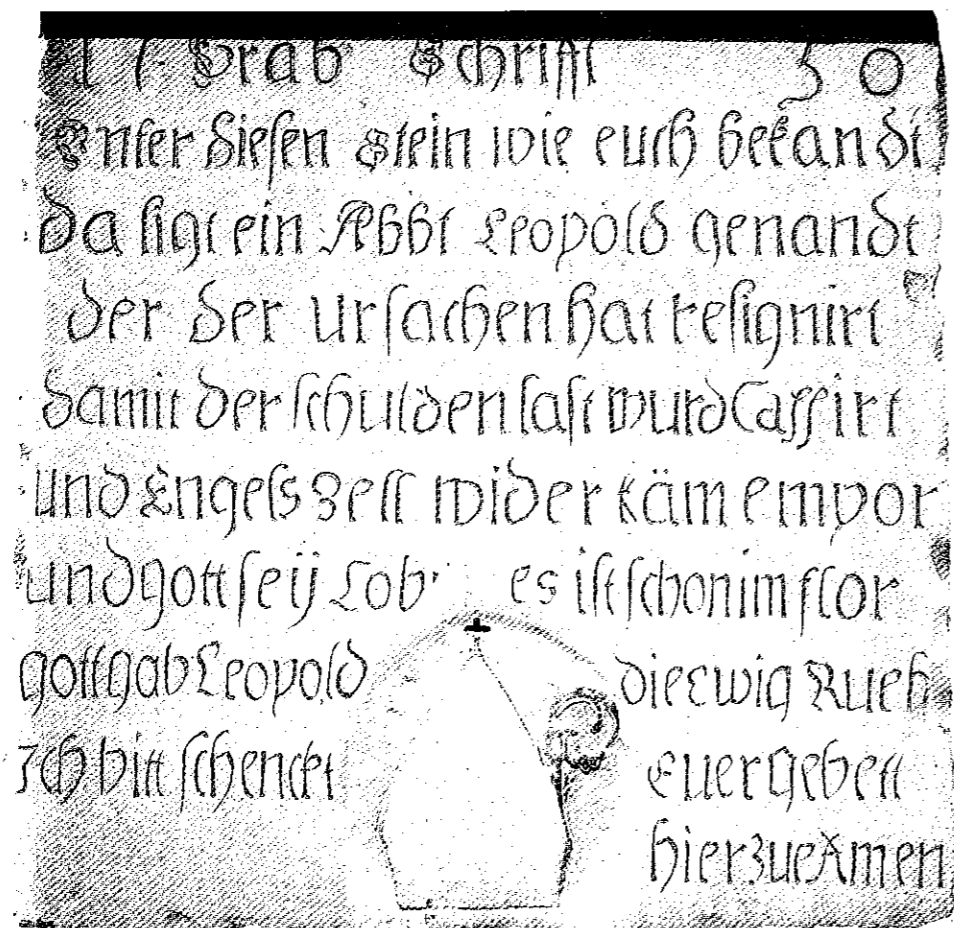 17 Grab Schrifft 50
Unter diesen Stein wie euch bekandt
da ligt ein Abbt Leopold genandt
der der ursachen hat resignirt
damit der schulden last wurd Cassirt
und Engels Zell wider käm empor
und gott seij Lob es ist schon im flor
gott gab Leopold die Ewig Rueh
Ich bitt schenckt Euer Gebett
hier zue Amen